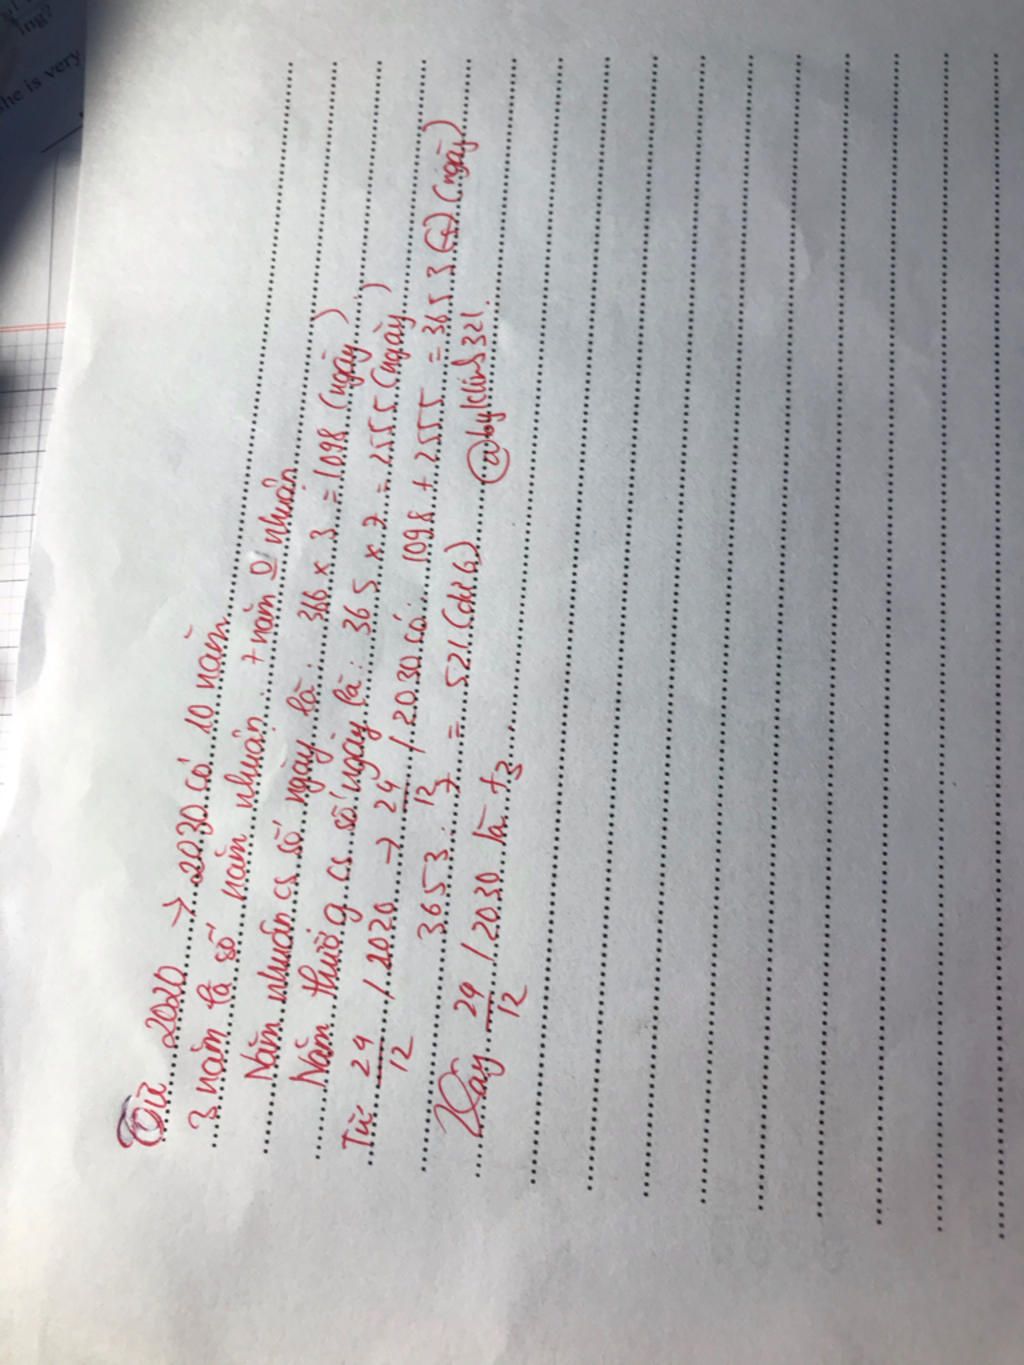 ing?
he is very
Từ 2020 → 2030 có 10 năm
3 năm là số năm nhuận. 7 năm 0 nhuận
Năm nhuần cs số ngày là: 366 x 3 = 1098 (ngày)
Năm thườg cs số ngày là: 365 x 7 = 2555 (ngày)
Từ 24/12/2020 → 24/12/2030 có: 1098 + 2555 = 3653 (ngày)
3653 : 7 = 521 (dư 6)
Vây 24/12/2030 là t3
321